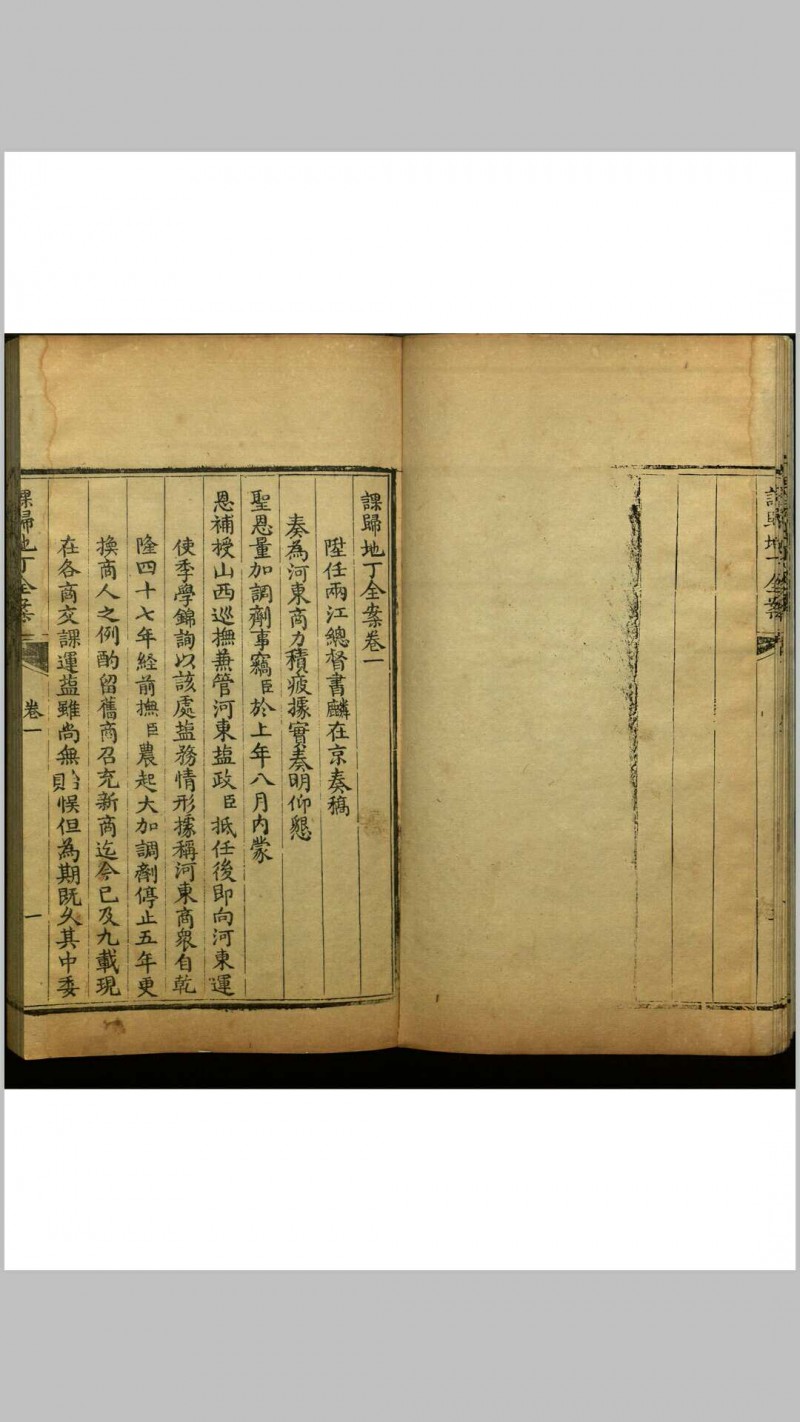 課歸地丁全案
課歸地丁全案卷一
陞任兩江總督書麟在京奏稿
奏為河東商力積疲據實奏明仰懇
聖恩量加調劑事竊臣於上年八月内蒙
恩補授山西巡撫兼管河東鹽政臣抵任後即向河東運
使季學錦詢以該處鹽務情形據稱河東商衆自乾
隆四十七年經前撫臣農起大加調劑停止五年更
換商人之例酌留舊商召充新商迄今已及九載現
在各商交課運鹽雖尚無貽悞但為期既久其中委
課歸地丁全案
卷一
一